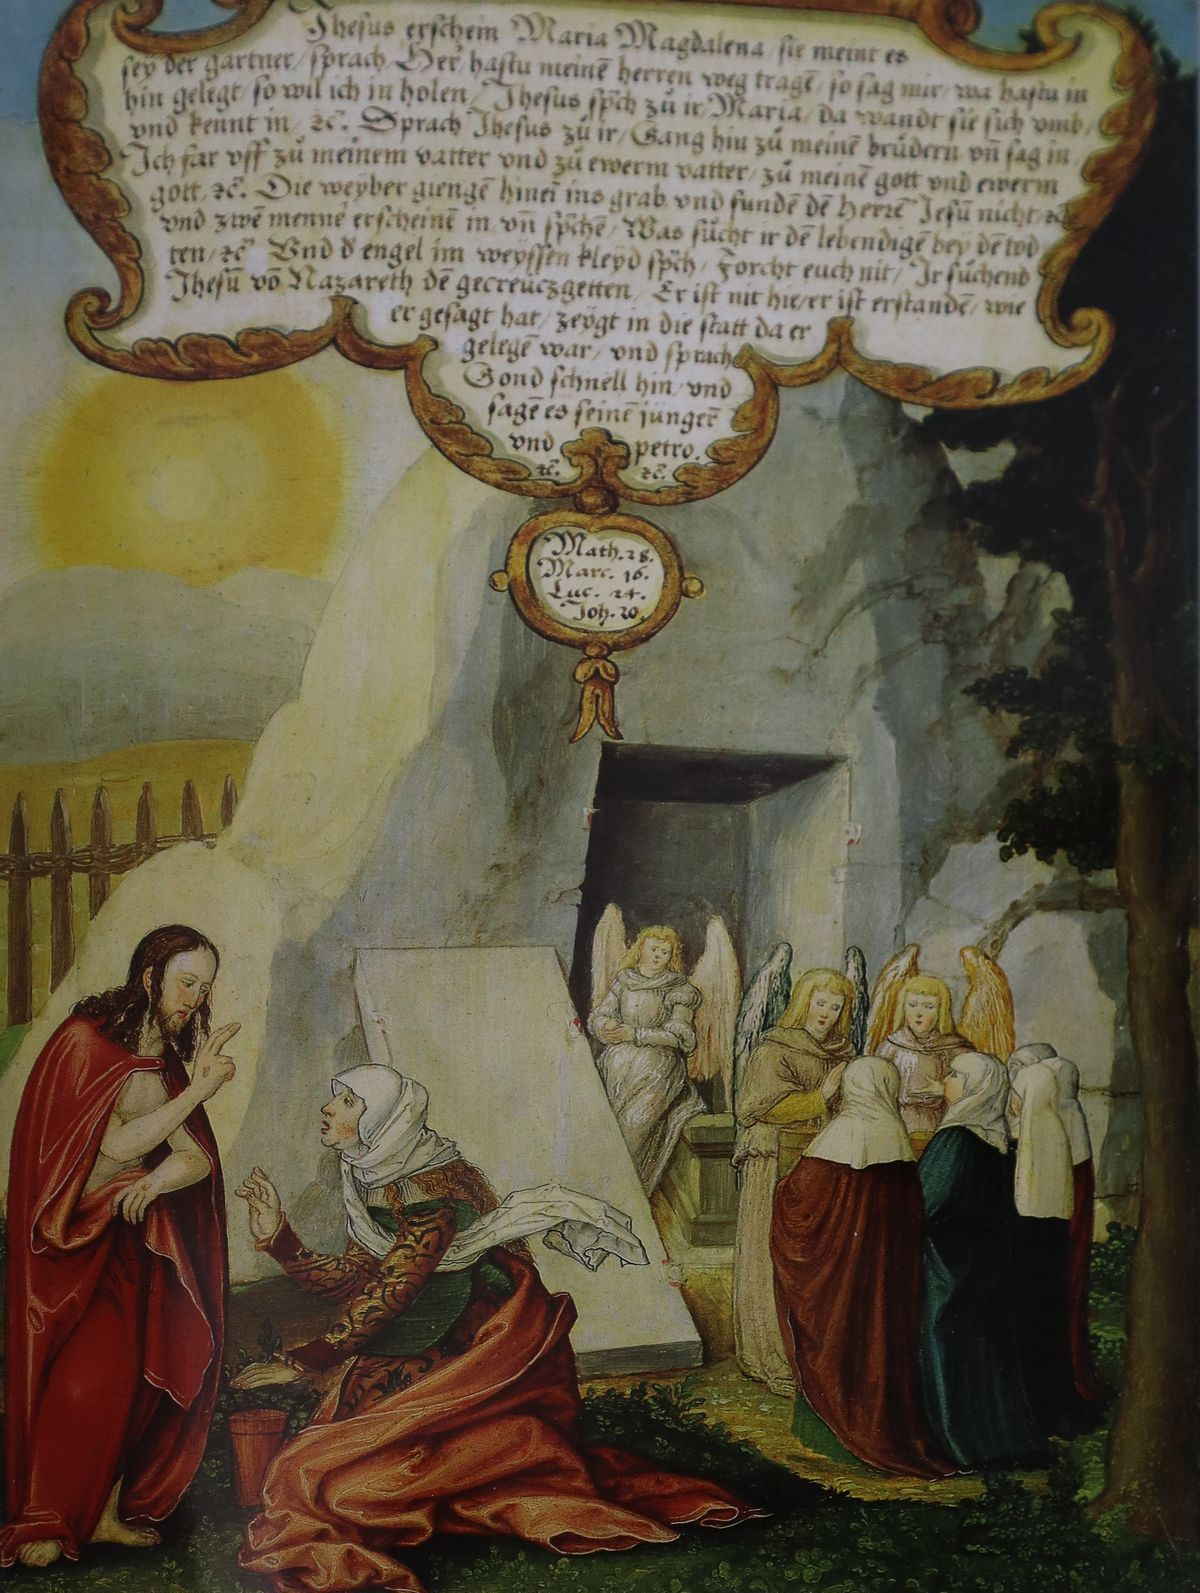 Jhesus erschein Maria Magdalena / sie meint es
sey der gartner / sprach Her hastu meinē herren weg tragē / so sag mir / wa hastu in
hin gelegt / so wil ich in holen / Jhesus spch zů ir / Maria / da wandt sie sich vmb /
vnd kennt in / ꝛc̄. Sprach Jhesus zů ir / Gang hin zů meinē brůdern vn̄ sag in /
Jch far vff zů meinem vatter vnd zů ewerm vatter / zů meinē gott vnd ewerm
gott, ꝛc̄. Die weyber giengē hinei ins grab vnd fundē dē herrē Jesū nicht / ꝛc̄
vnd zwē mennē erscheinē in / vn̄ spchē / Was sůcht ir dē lebendigē bey dē tod
ten / ꝛc̄ Vnd d̄ engel im weyssen kleyd spch / Forcht euch nit / Jr sůchend
Jhesū vō Nazareth dē gecreuczgetten / Er ist nit hie / er ist erstandē / wie
er gesagt hat / zeygt in die statt da er
gelegē war / vnd sprach
Gond schnell hin / vnd
sagē es seinē jüngeē
vnd petro.
ꝛc̄. ꝛc̄.
Math. 28.
Marc. 16.
Luc. 24.
Joh. 20.